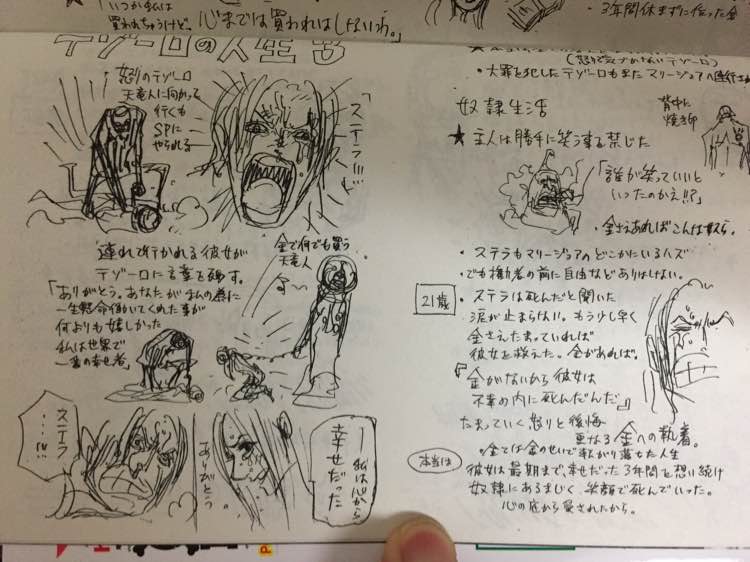 「いつか私は
買われちゃうけど、心までは買われはしないわ。」
・3年間休まずに伝った金
テゾーロの人生 ⑤
怒りのテゾーロ
天竜人に向かって
行くも
SPに
やられる
「ステラ!!!
連れて行かれる彼女が
テゾーロに言葉を残す。
「ありがとう。あなたが私の為に
一生懸命働いてくれた事が
何よりも嬉しかった
私は世界で
一番の幸せ者」
金で何でも買う
天竜人
ステラ
…!!
ありがとう
私は心から
幸せだった
(怒りで気づかないテゾーロ)
・大罪を犯したテゾーロもまたマリージョアへ
奴隷生活
背中に
焼き印
★主人は勝手に笑う事を禁じた
「誰が笑っていいと
いったのかえ!!?」
・金さえあればこんな
・ステラもマリージョアのどこかにいるハズ
・でも権力者の前に自由などありはしない。
21歳
・ステラは死んだと聞いた
涙が止まらない。もう少し早く
金さえたまっていれば
彼女を救えた。金があれば。
『金がないから彼女は
不幸の内に死んだんだ』
たまっていく怒りと後悔
更なる金への執着。
・全ては金のせいで転がり落ちた人生
本当は
彼女は最期まで、幸せだった3年間を想い続け
奴隷にあるまじく笑顔で死んでいった。
心の底から愛されたから。